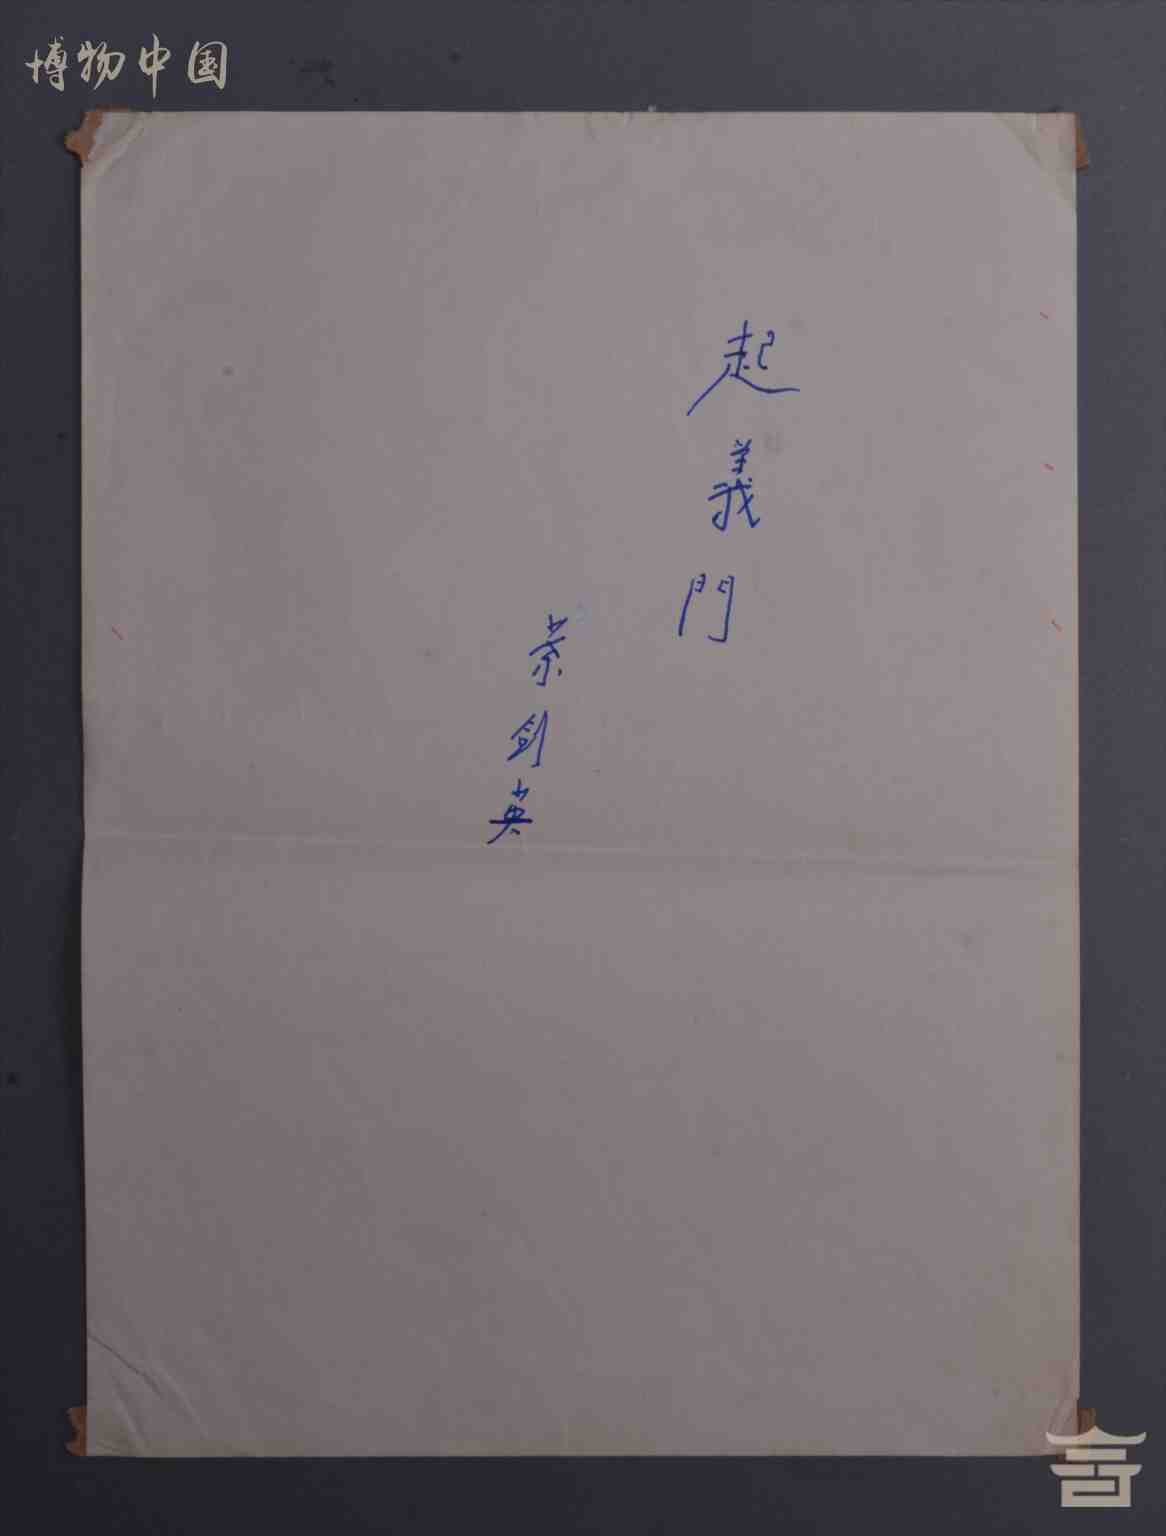 博物中国
起義門
葉剑英